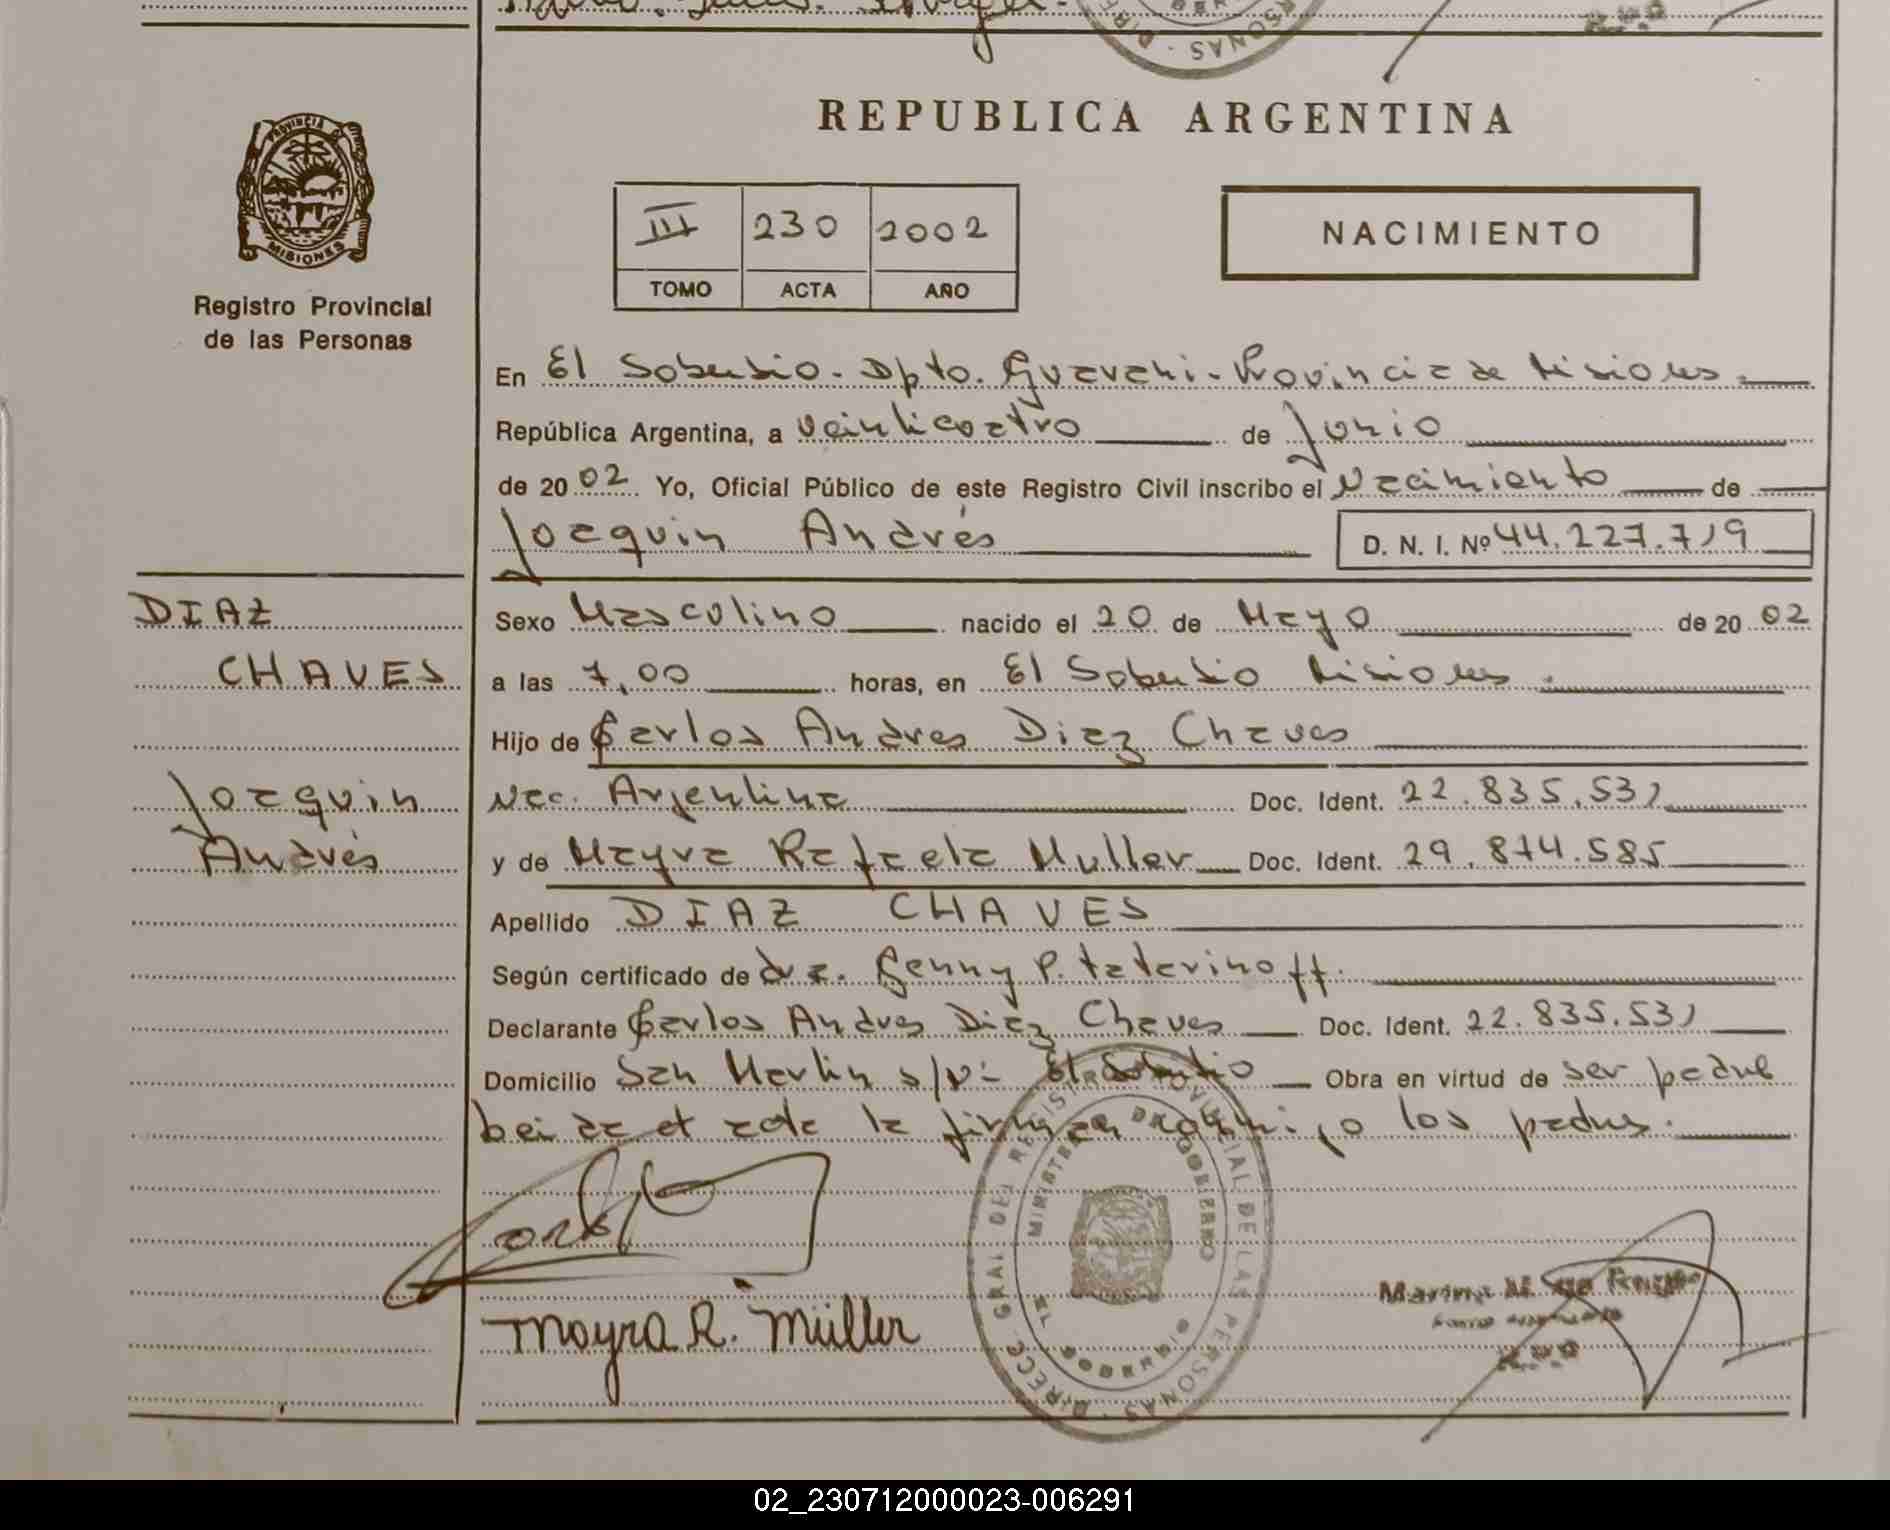 REPUBLICA ARGENTINA
PROVINCIA DE
MISIONES
Registro Provincial
de las Personas
III 230 2002
TOMO ACTA AÑO
NACIMIENTO
En El Soberbio. Dpto. Guarani. Provincia de Misiones.
República Argentina, a veinticuatro de Junio
de 2002 Yo, Oficial Público de este Registro Civil inscribo el Nacimiento de
Joaquin Andrés D. N. I. Nº 44.227.719
DIAZ
CHAVES
Joaquin
Andrés
Sexo Masculino nacido el 20 de Mayo de 2002
a las 7,00 horas, en El Soberbio Misiones.
Hijo de Carlos Andres Diaz Chaves
Nac. Argentina Doc. Ident. 22.835.531
y de Mayra Rafaela Muller Doc. Ident. 29.874.585
Apellido DIAZ CHAVES
Según certificado de dra. Genny P. Tatarinoff.
Declarante Carlos Andres Diaz Chaves Doc. Ident. 22.835.531
Domicilio San Martin s/Nº El Soberbio Obra en virtud de ser padre
leida el acta la firman conmigo los padres.
Mayra R. Müller
DIRECC. GRAL DEL REGISTRO PROVINCIAL DE LAS PERSONAS
MINISTERIO DE GOBIERNO
EL SOBERBIO
Marina
02_230712000023-006291